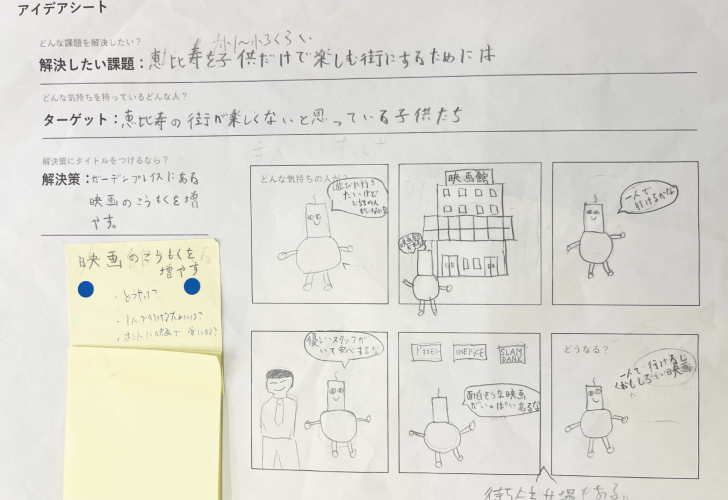 アイデアシート
どんな課題を解決したい?
小1〜小3くらい
解決したい課題:恵比寿を子供だけで楽しむ街にするためには
どんな気持ちを持っているどんな人?
ターゲット:恵比寿の街が楽しくないと思っている子供たち
解決策にタイトルをつけるなら?
解決策:ガーデンプレイスにある
映画のこうもくを増
やす。
映画のこうもくを
増やす
・どうやって?
どんな気持ちの人が?
たいけど
映画館
一人で
行けるかな
優しいスタッフが
いて安心するな
SLAM
DANK
面白そうな映画
がいっぱいあるな
どうなる?
一人で行けるし
おもしろい映画